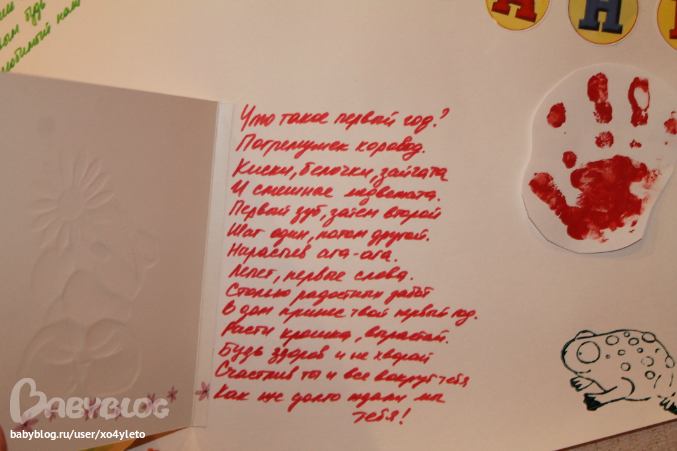 ым будь
любимый
А Н
Что такое первый год?
Погремушек хоровод.
Киски, белочки, зайчата
И смешные медвежата.
Первый зуб, затем второй
Шаг один, потом другой.
Нараспев ага-ага.
Лепет, первые слова.
Столько радостных забот
В дом принес твой первый год.
Расти крошка, вырастай.
Будь здоров и не хворай
Счастлив ты и все вокруг тебя
Как же долго ждали мы
тебя!
BABYBLOG
babyblog.ru/user/xo4yleto